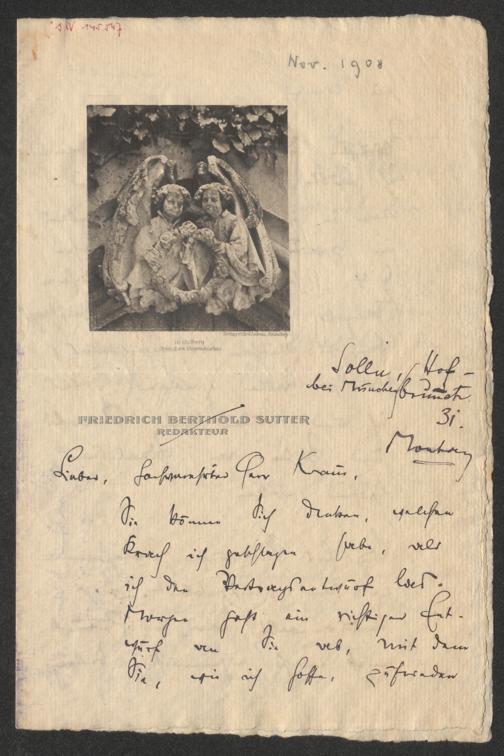 Nov. 1908
Heidelberg
FRIEDRICH BERTHOLD SUTTER
REDAKTEUR
Solln, Hof-
bei München brünnstr
31.
Montag
Lieber, hochverehrter Herr Kraus,
Sie können Sich denken, welchen
Krach ich geschlagen habe, als
ich den Vertragsentwurf las.
Morgen geht ein richtiger Ent-
wurf an Sie ab, mit dem
Sie, wie ich hoffe, zufrieden